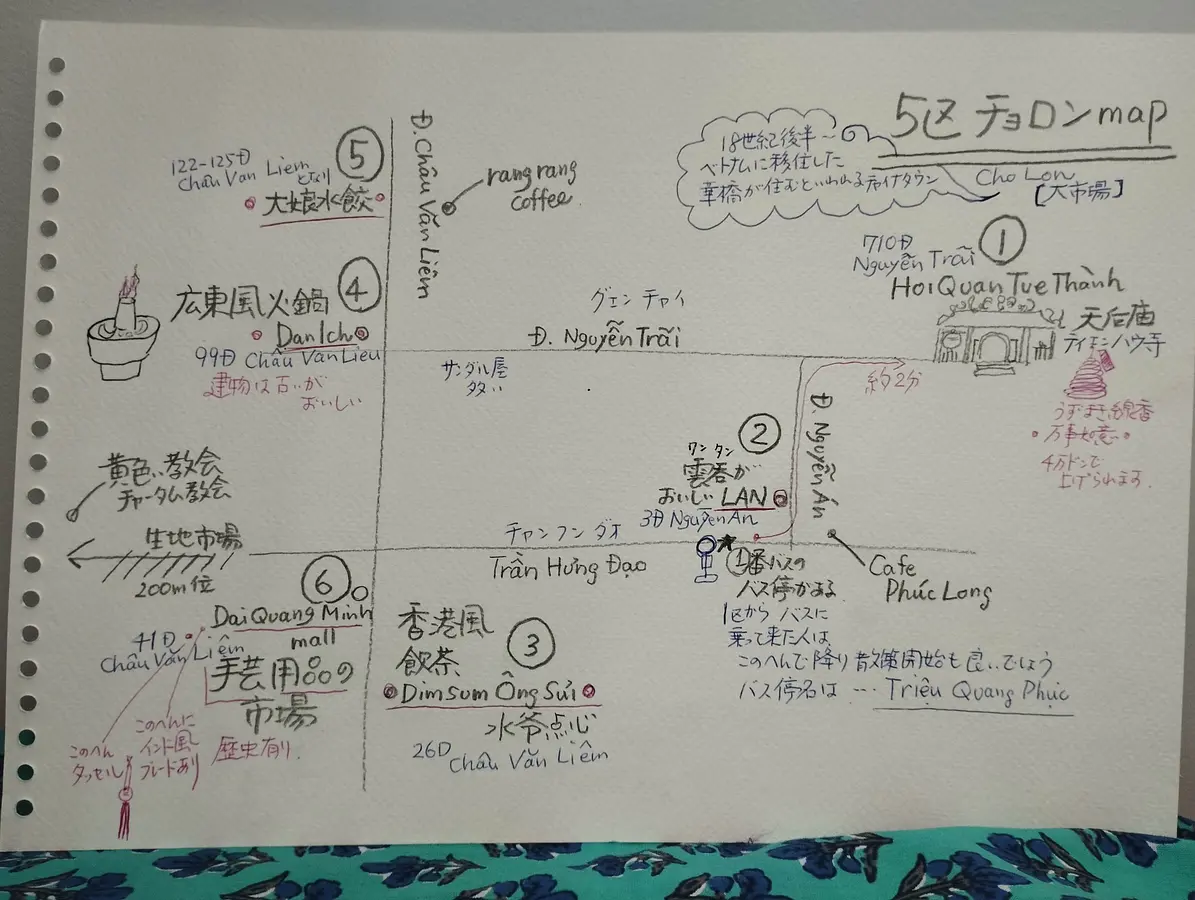 5区 チョロン map
Cho Lon
[大市場]
18世紀後半〜
ベトナムに移住した
華橋が住むといわれるチャイナタウン
①
710Đ
Nguyễn Trãi
Hoi Quan Tue Thành
天后庙
ティエンハウ寺
うずまき線香
•万事如意•
4万ドンで
上げられます.
約2分
⑤
122-125Đ
Châu Van Liem
となり
大娘水餃
Đ. Châu Văn Liêm
rang rang
coffee
④
広東風火鍋
Dan Ich
99Đ Châu Van Lieu
建物は古いが
おいしい
グエン チャイ
Đ. Nguyễn Trãi
サンダル屋
多い
Đ. Nguyễn Án
②
ワンタン
雲呑が
おいしい LAN
3Đ Nguyễn An
黄色い教会
チャータム教会
生地市場
200m位
チャンフン ダオ
Trần Hưng Đạo
★①番バスの
バス停がある
1区から バスに
乗って来た人は、
このへんで降り 散策開始も良いでしょう
バス停名は … Triệu Quang Phục
Cafe
Phúc Long
⑥
Dai Quang Minh
mall
41Đ
Châu Văn Liêm
手芸用品の
市場
歴史有り.
このへん
タッセル
このへんに
インド風
ブレードあり
香港風
飲茶
③
Dimsum Ông Sủi
水爷点心
26D
Châu Văn Liêm